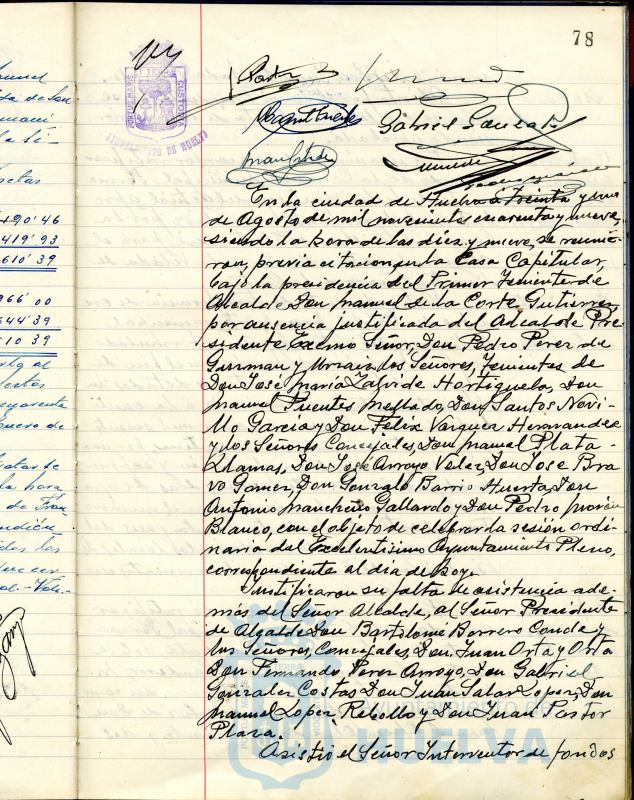 78
PORTUS MARIS ET TERRAE CUSTODIA
AYUNTAMIENTO DE HUELVA
Gabriel
En la ciudad de Huelva a treinta y uno
de Agosto de mil novecientos cuarenta y nueve,
siendo la hora de las diez y nueve, se reunie-
ron, previa citacion, en la Casa Capitular,
bajo la presidencia del Primer Teniente de
Alcalde Don Manuel de la Corte Gutierrez
por ausencia justificada del Alcalde Pre-
sidente Excmo Señor Don Pedro Perez de
Guzman y los Señores, Tenientes de
Don Jose Maria Zalvide Hortiguela, Don
Manuel Fuentes Mellado, Don Santos Novi-
llo Garcia y Don Felix Vazquez Hernandez
y los Señores Concejales, Don Manuel Plata
Llamas, Don Jose Arroyo Velez, Don Jose Bra-
vo Gomez, Don Gonzalo Barrio Huerta, Don
Antonio Mancheño Gallardo y Don Pedro Morón
Blanco, con el objeto de celebrar la sesión ordi-
naria del Excelentisimo Ayuntamiento Pleno,
correspondiente al dia de hoy.
Justificaron su falta de asistencia ade-
más del Señor Alcalde, al Señor Presidente
de Alcalde Don Bartolomé Borrero Conde y
los Señores, Concejales, Don Juan Orta y Orta
Don Fernando Perez Arroyo, Don Gabriel
Gonzalez Costas, Don Juan Salas Lopez, Don
Manuel Lopez Rebollo y Don Juan Pastor
Plaza.
Asistió el Señor Interventor de fondos
Ayuntamiento de
HUELVA
190'46
419'93
610'39
966'00
644'39
10 39